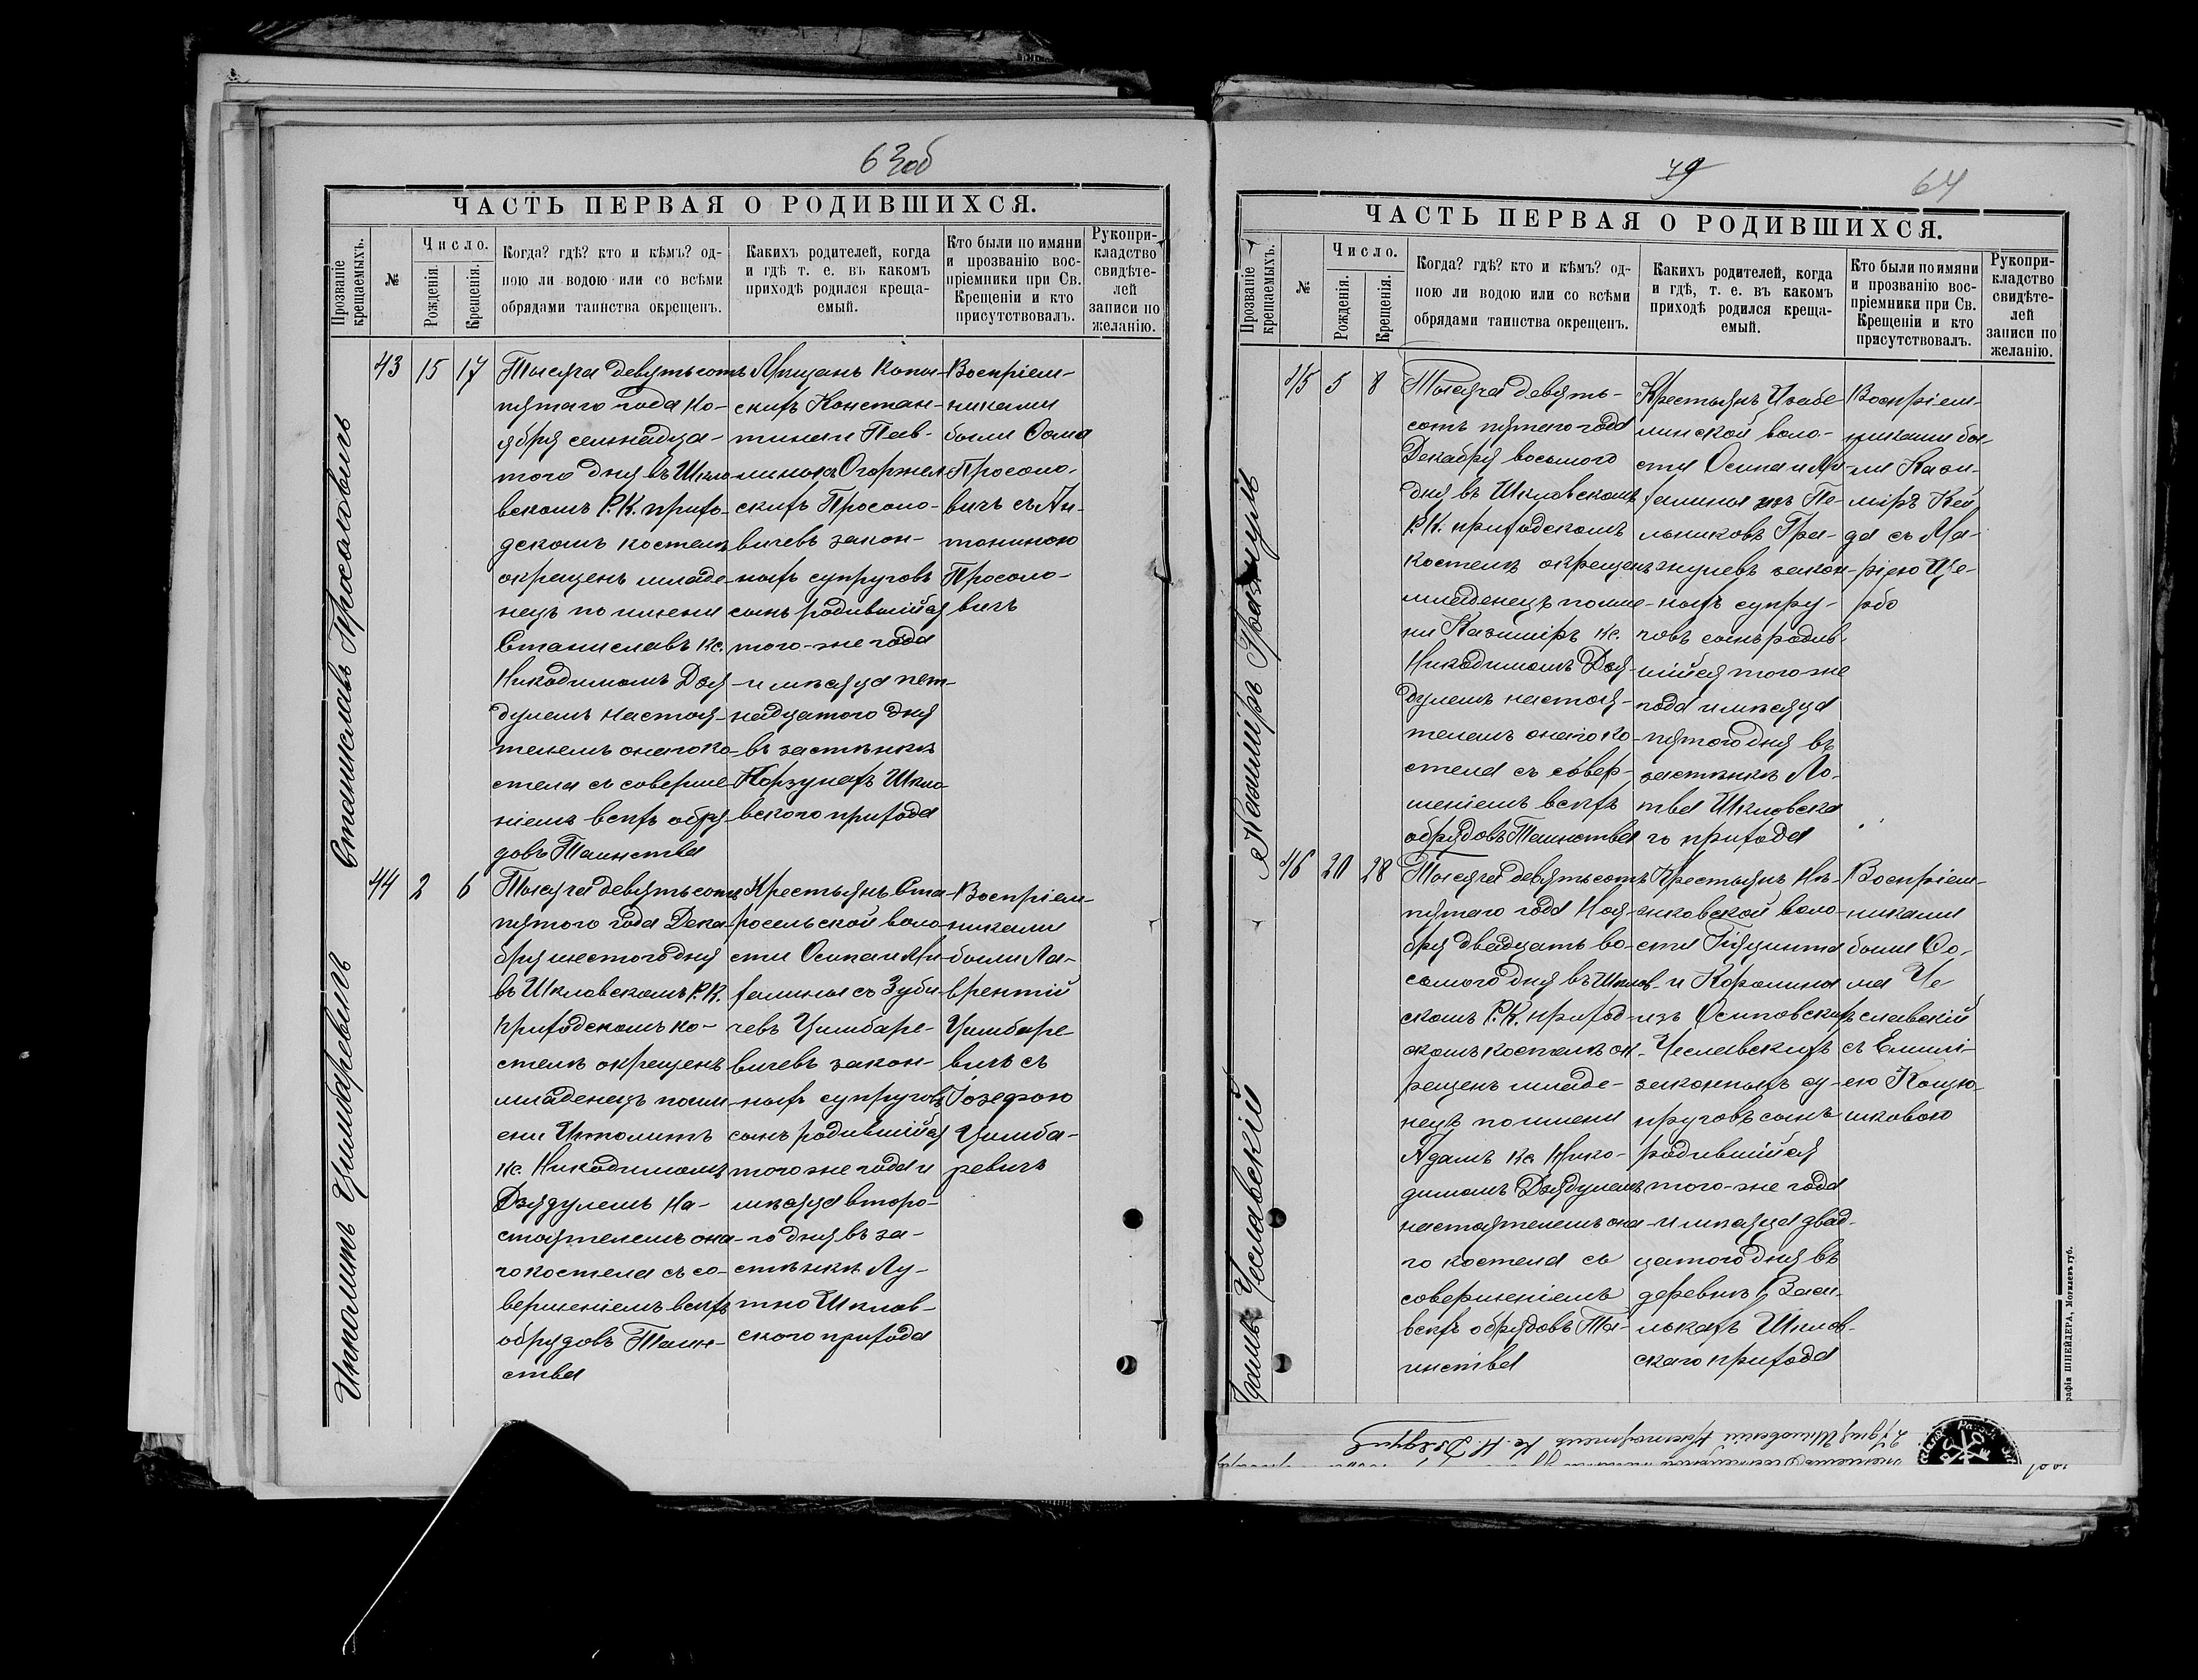 63об
ЧАСТЬ ПЕРВАЯ О РОДИВШИХСЯ.
Прозваніе крещаемыхъ.
№
Число.
Рожденія.
Крещенія.
Когда? гдѣ? кто и кѣмъ? од-
ною ли водою или со всѣми
обрядами таинства окрещенъ.
Какихъ родителей, когда
и гдѣ т. е. въ какомъ
приходѣ родился креща-
емый.
Кто были по имяни
и прозванію вос-
пріемники при Св.
Крещеніи и кто
присутствовалъ.
Рукопри-
кладство
свидѣте-
лей
записи по
желанію.
Станиславъ Просоловичъ
43 15 17
Тысяча девятьсотъ
пятаго года Но-
ября семнадца-
того дня въ Шкло
вскомъ Р.К. прихо-
дскомъ костелѣ
окрещенъ младе-
нецъ по имени
Станиславъ кс.
Никодимомъ Дзя-
дулемъ настоя-
телемъ онаго ко-
стела съ соверше
ніемъ всѣхъ обря
довъ Таинства
Мѣщанъ Копы-
скихъ Констан-
тина и Пав-
лины съ Огоржел
скихъ Просоло-
вичевъ закон-
ныхъ супруговъ
сынъ родившійся
того-же года
и мѣсяца пет-
надцатого дня
въ застѣнкѣ
Корзунахъ Шкло
вского прихода
Воспріем-
никами
были Ѳома
Просоло-
вичъ съ Ан-
тониною
Просоло-
вичъ
Ипполитъ Цимбаревичъ
44 2 6
Тысяча девятьсотъ
пятого года Дека-
бря шестого дня
въ Шкловскомъ Р.К.
приходскомъ ко-
стелѣ окрещенъ
младенецъ по им-
ени Ипполитъ
кс. Никодимомъ
Дзядулемъ на-
стоятелемъ она-
го костела съ со-
вершеніемъ всѣхъ
обрядовъ Таин-
ства
Крестьянъ Ста-
росельской воло-
сти Осипа и Ми-
халины съ Зуби-
чевъ Цимбаре-
вичевъ закон-
ныхъ супруговъ
сынъ родившійся
того же года и
мѣсяца второ-
го дня въ за-
стѣнкѣ Лу-
тно Шклов-
ского прихода
Воспріем-
никами
были Ла-
врентій
Цимбаре
вичъ съ
Іозефою
Цимба-
ревичъ
79
64
ЧАСТЬ ПЕРВАЯ О РОДИВШИХСЯ.
Прозваніе крещаемыхъ.
№
Число.
Рожденія.
Крещенія.
Когда? гдѣ? кто и кѣмъ? од-
ною ли водою или со всѣми
обрядами таинства окрещенъ.
Какихъ родителей, когда
и гдѣ, т. е. въ какомъ
приходѣ родился креща-
емый.
Кто были по имяни
и прозванію вос-
пріемники при Св.
Крещеніи и кто
присутствовалъ.
Рукопри-
кладство
свидѣте-
лей
записи по
желанію.
Казиміръ Гражуль
45 5 8
Тысяча девять-
сотъ пятаго года
Декабря восьмого
дня въ Шкловскомъ
Р.К. приходскомъ
костелѣ окрещенъ
младенецъ по име-
ни Казиміръ кс.
Никодимомъ Дзя-
дулемъ настоя-
телемъ онаго ко-
стела съ совер-
шеніемъ всѣхъ
обрядовъ Таинства
Крестьянъ Изабе
линской воло-
сти Осипа и Ми-
халины изъ Пе-
льниковъ Гра-
жулевъ закон-
ныхъ супру-
говъ сынъ родив
шійся того же
года и мѣсяца
пятого дня въ
застѣнкѣ Ло-
тва Шкловска
го прихода
Воспріем-
никами бы-
ли Кази-
міръ Кей
да съ Ма-
ріею Це-
рбо
Чеславскій
46 20 28
Тысяча девятьсотъ
пятаго года Ноя-
бря двадцать во-
сьмого дня въ Шклов-
скомъ Р.К. приход-
скомъ костелѣ ок-
рещенъ младе-
нецъ по имени
Адамъ кс. Нико-
димомъ Дзядулемъ
настоятелемъ она-
го костела съ
совершеніемъ
всѣхъ обрядовъ Та-
инства
Крестьянъ Не-
жковской воло-
сти Гіяцинта
и Каролины
изъ Осиповскихъ
Чеславскихъ
законныхъ су-
пруговъ сынъ
родившійся
того-же года
и мѣсяца двад-
цатого дня въ
деревнѣ Васи-
лькахъ Шклов-
скаго прихода
Воспріем-
никами
были Ѳо-
ма Че
славскій
съ Емилі-
ею Коцю-
шковою
27 дня Шкловскій Настоятель Кс. Н. Дзядуль
рафія ШНЕЙДЕРА, Могилевъ губ.